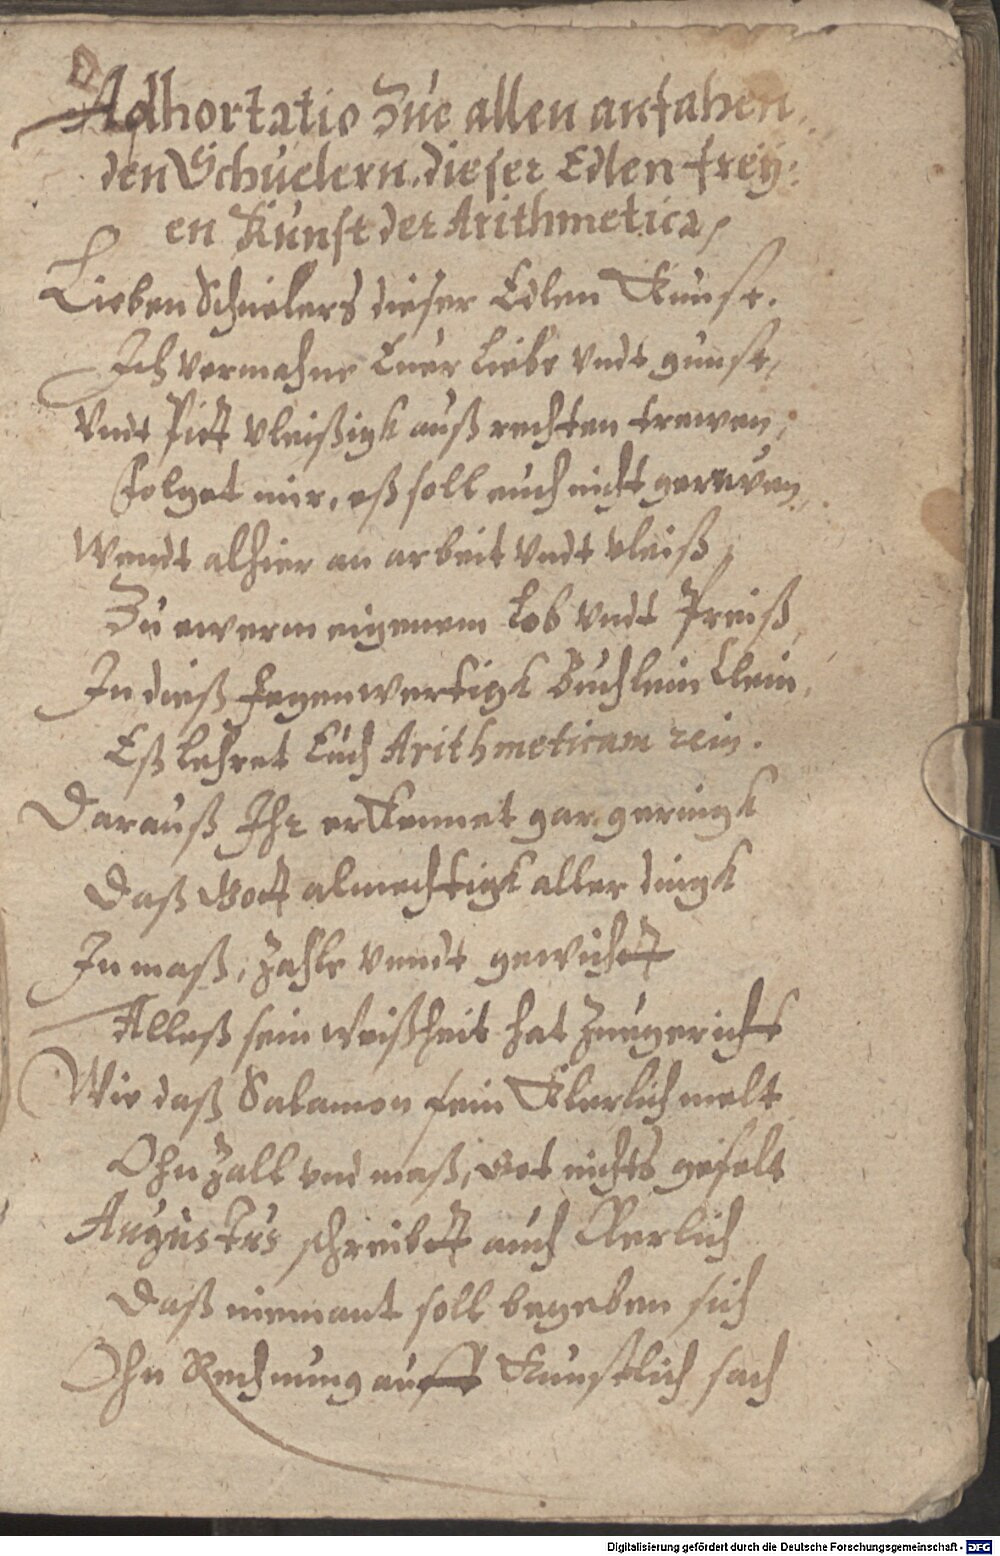 Adhortatio Zue allen anfahen
den Schuelern, dieser Edlen frey:
en Kunst der Arithmetica,
Lieben Schuelers dieser Edlen Kunst.
Ich vermahne Euer Liebe vndt gunst,
Vndt Pitt vleißigk auß rechten trewen,
Folget mir, eß soll euch nicht gerewen,
Wendt alhier an arbeit vndt vleiß,
Zu ewerm eigenem Lob vndt Preiß,
In dieß kegenwertigk Buchlein klein,
Eß lehret Euch Arithmeticam rein.
Darauß Ihr erkennet gar geringk
Daß Gott almechtigk aller dingk
In maß, zahle vnndt gewichtt
Alleß sein weißheit hat zuugericht
Wie daß Salamon fein klerlich melt
Ohn zall vnd maß, Got nichts gefelt
Augustus schreibtt auch klerlich
Daß niemant soll begeben sich
Ohn Rechnung auff kunstlich sach
Digitalisierung gefördert durch die Deutsche Forschungsgemeinschaft - DFG